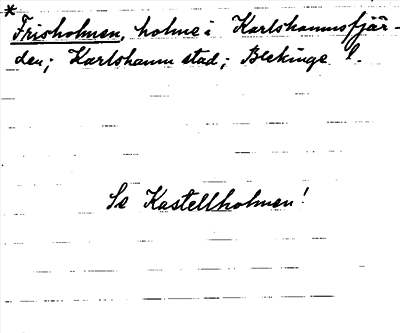 *
Frisholmen, holme i Karlshamnsfjär-
den; Karlshamn stad; Blekinge l.
Se Kastellholmen!